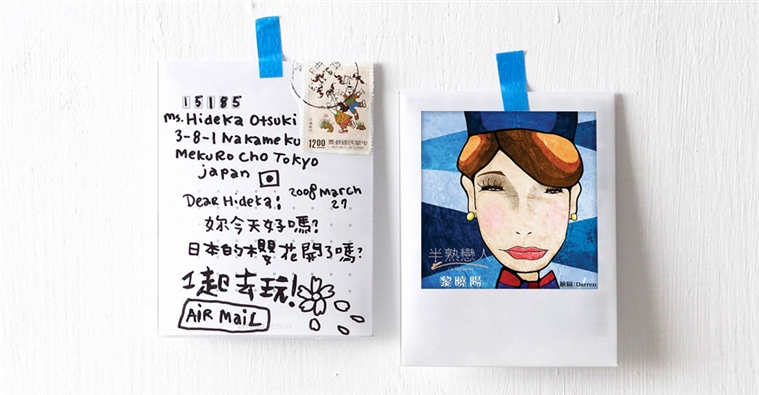 15185
Ms. Hideka Otsuki
3-8-1 Nakameku
MekuRo Cho Tokyo
japan
Dear Hideka:
2008 March
27
妳今天好嗎?
日本的櫻花開了嗎?
1起去玩!
AIR MaiL
12.00
半熟戀人
黎曉陽
繪圖:Darren